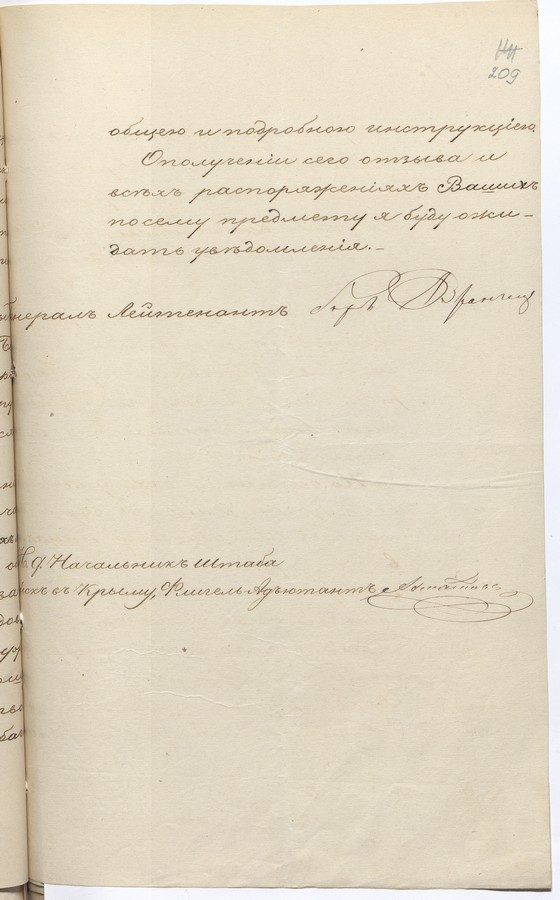 209
общею и подробною инструкціею.
О полученіи сего отзыва и
всѣхъ распоряженіяхъ Вашихъ
по сему предмету я буду ожи-
дать увѣдомленія.-
нералъ Лейтенантъ
И. д. Начальникъ Штаба
въ Крыму, Флигель Адъютантъ